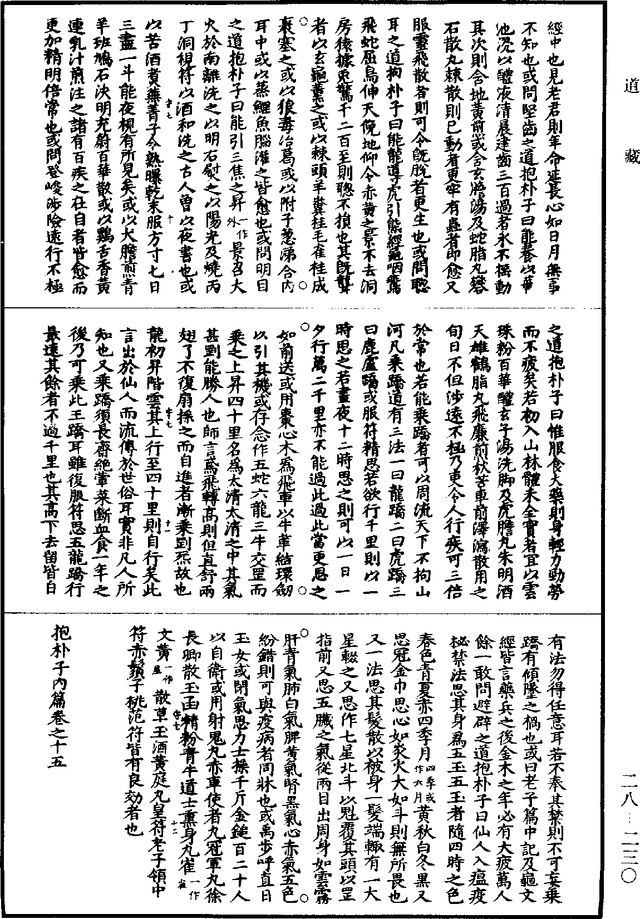 道藏
經中也見老君則年命延長心如日月無事
不知也或問堅齒之道抱朴子曰能養以華
池浸以醴液清晨建齒三百過者永不搖動
其次則含地黃煎或含玄膽湯及蛇脂丸礬
石散丸棘散則已動者更牢有蟲者即愈又
服靈飛散者則可令既脫者更生也或問聰
耳之道抱朴子曰能龍導虎引熊經龜咽鷰
飛蛇屈鳥伸天俛地仰令赤黃之景不去洞
房猿據兎驚千二百至則聰不損也其既聾
者以玄龜薰之或以棘頭羊糞桂毛雀桂成
裹塞之或以狼毒冶葛或以附子葱涕合內
耳中或以蒸鯉魚腦灌之皆愈也或問明目
之道抱朴子曰能引三焦之昇外一作景召大
火於南離洗之以明石熨之以陽光及燒丙
丁洞視符以酒和洗之古人曾以夜書也或
以苦酒煮蕪菁子令熟曝乾末服方寸七日
三盡一斗能夜視有所見矣或以犬膽煎青
羊班鳩石決明充蔚百華散或以鷄舌香黃
連乳汁煎注之諸有百疾之在目者皆愈而
更加精明倍常也或問登峻涉險遠行不極
之道抱朴子曰惟服食大藥則身輕力勁勞
而不疲矣若初入山林體未全實者宜以雲
珠粉百華醴玄子湯洗脚及虎膽丸朱明酒
天雄鶴脂丸飛廉煎秋芒車前澤瀉散用之
旬日不但涉遠不極乃更令人行疾可三倍
於常也若能乘蹻者可以周流天下不拘山
河凡乘蹻道有三法一曰龍蹻二曰虎蹻三
曰鹿盧蹻或服符精思若欲行千里則以一
時思之若晝夜十二時思之則可以一日一
夕行萬二千里亦不能過此過此當更思之
如前送或用棗心木為飛車以牛革結環劒
以引其機或存念作五蛇六龍三牛交罡而
乘之上昇四十里名為太清太清之中其氣
甚剄能勝人也師言鳶飛轉高則但直舒兩
翅了不復扇搖之而自進者漸乘剄炁故也
龍初昇階雲其上行至四十里則自行矣此
言出於仙人而流傳於世俗耳實非凡人所
知也又乘蹻須長齋絕葷菜斷血食一年之
後乃可乘此三蹻耳雖復服符思五龍蹻行
最遠其餘者不過千里也其高下去留皆自
有法勿得任意耳若不奉其禁則不可妄乘
蹻有傾墜之禍也或曰老子篇中記及龜文
經皆言藥兵之後金木之年必有大疫萬人
餘一敢問避辟之道抱朴子曰仙人入瘟疫
秘禁法思其身為五玉五玉者隨四時之色
春色青夏赤四季月四季或作六月黃秋白冬黑又
思冠金巾思心如炎火大如斗則無所畏也
又一法思其髮散以被身一髮端輒有一大
星綴之又思作七星北斗以魁覆其頭以罡
指前又思五臟之氣從兩目出周身如雲霧
肝青氣肺白氣脾黃氣腎黑氣心赤氣五色
紛錯則可與疫病者同牀也或禹步呼直日
玉女或閉氣思力士操千斤金鎚百二十人
以自衛或用射鬼丸赤車使者丸冠軍丸徐
長卿散玉函精粉青牛道士熏身丸崔一作雀
文黃一作星散草玉酒黃庭丸皇符老子領中
符赤鬚子桃范符皆有良効者也
抱朴子內篇卷之十五
二八-二三〇